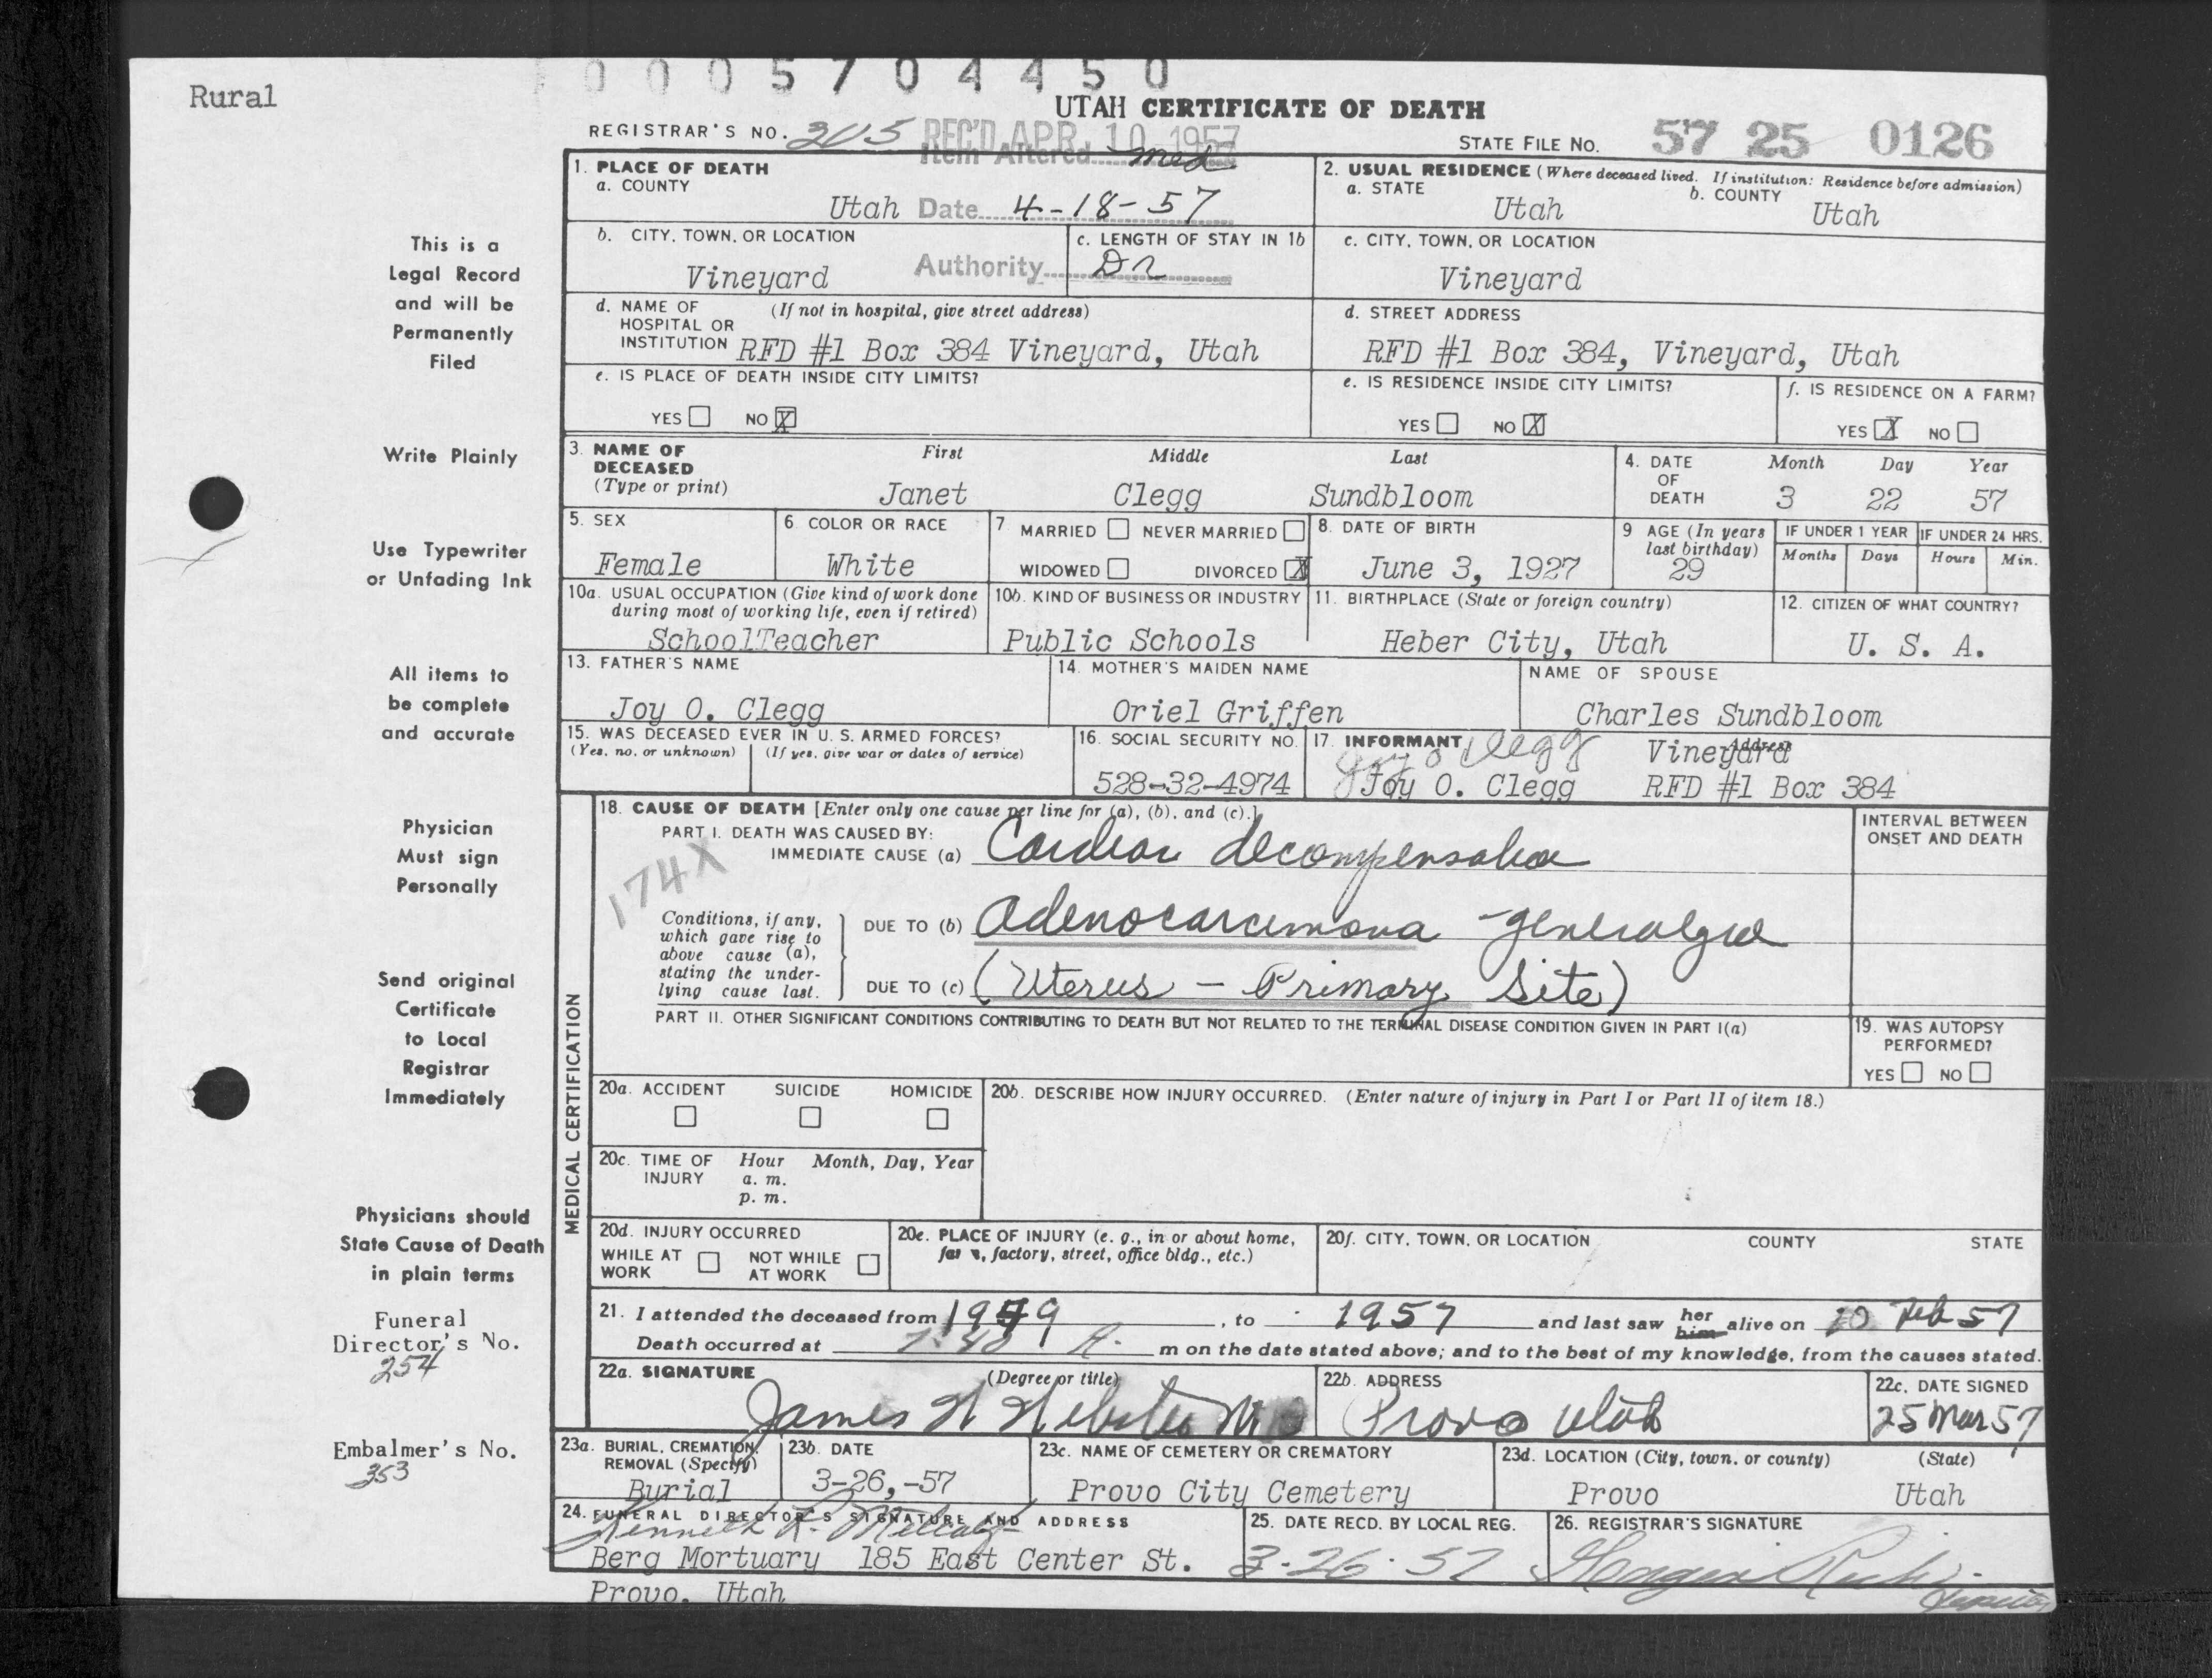 0005704450
Rural
UTAH CERTIFICATE OF DEATH
REGISTRAR'S NO. 205 REC'D APR 10 1957
STATE FILE NO. 57 25 0126
Item Altered med
1. PLACE OF DEATH
a. COUNTY
Utah Date 4-18-57
2. USUAL RESIDENCE (Where deceased lived. If institution: Residence before admission)
a. STATE Utah
b. COUNTY Utah
b. CITY, TOWN, OR LOCATION
Vineyard
Authority Dr
c. LENGTH OF STAY IN 1b
c. CITY, TOWN, OR LOCATION
Vineyard
d. NAME OF HOSPITAL OR INSTITUTION (If not in hospital, give street address)
RFD #1 Box 384 Vineyard, Utah
d. STREET ADDRESS
RFD #1 Box 384, Vineyard, Utah
e. IS PLACE OF DEATH INSIDE CITY LIMITS?
YES NO X
e. IS RESIDENCE INSIDE CITY LIMITS?
YES NO X
f. IS RESIDENCE ON A FARM?
YES X NO
3. NAME OF DECEASED (Type or print)
First Middle Last
Janet Clegg Sundbloom
4. DATE OF DEATH
Month Day Year
3 22 57
5. SEX
Female
6. COLOR OR RACE
White
7 MARRIED NEVER MARRIED
WIDOWED DIVORCED X
8. DATE OF BIRTH
June 3, 1927
9 AGE (In years last birthday)
29
IF UNDER 1 YEAR
Months Days
IF UNDER 24 HRS.
Hours Min.
10a. USUAL OCCUPATION (Give kind of work done during most of working life, even if retired)
SchoolTeacher
10b. KIND OF BUSINESS OR INDUSTRY
Public Schools
11. BIRTHPLACE (State or foreign country)
Heber City, Utah
12. CITIZEN OF WHAT COUNTRY?
U. S. A.
13. FATHER'S NAME
Joy O. Clegg
14. MOTHER'S MAIDEN NAME
Oriel Griffen
NAME OF SPOUSE
Charles Sundbloom
15. WAS DECEASED EVER IN U. S. ARMED FORCES?
(Yes, no, or unknown) (If yes, give war or dates of service)
16. SOCIAL SECURITY NO.
528-32-4974
17. INFORMANT Joy O Clegg
Joy O. Clegg
Address
Vineyard
RFD #1 Box 384
MEDICAL CERTIFICATION
18. CAUSE OF DEATH [Enter only one cause per line for (a), (b), and (c).]
PART I. DEATH WAS CAUSED BY:
IMMEDIATE CAUSE (a) Cardiac decompensation
INTERVAL BETWEEN ONSET AND DEATH
174X
Conditions, if any, which gave rise to above cause (a), stating the underlying cause last.
DUE TO (b) Adenocarcinoma - generalized
DUE TO (c) (Uterus - Primary Site)
PART II. OTHER SIGNIFICANT CONDITIONS CONTRIBUTING TO DEATH BUT NOT RELATED TO THE TERMINAL DISEASE CONDITION GIVEN IN PART I(a)
19. WAS AUTOPSY PERFORMED?
YES NO
20a. ACCIDENT SUICIDE HOMICIDE
20b. DESCRIBE HOW INJURY OCCURRED. (Enter nature of injury in Part I or Part II of item 18.)
20c. TIME OF INJURY
Hour Month, Day, Year
a. m.
p. m.
20d. INJURY OCCURRED
WHILE AT WORK NOT WHILE AT WORK
20e. PLACE OF INJURY (e. g., in or about home, farm, factory, street, office bldg., etc.)
20f. CITY, TOWN, OR LOCATION COUNTY STATE
21. I attended the deceased from 1949, to 1957 and last saw her him alive on 20 Feb 57
Death occurred at 7:40 A. m on the date stated above; and to the best of my knowledge, from the causes stated.
22a. SIGNATURE (Degree or title)
James W Webster MD
22b. ADDRESS
Provo Utah
22c. DATE SIGNED
25 Mar 57
23a. BURIAL, CREMATION, REMOVAL (Specify)
Burial
23b. DATE
3-26,-57
23c. NAME OF CEMETERY OR CREMATORY
Provo City Cemetery
23d. LOCATION (City, town, or county) (State)
Provo Utah
24. FUNERAL DIRECTOR'S SIGNATURE AND ADDRESS
Kenneth R. Metcalf
Berg Mortuary 185 East Center St.
Provo, Utah
25. DATE RECD. BY LOCAL REG.
3-26-57
26. REGISTRAR'S SIGNATURE
This is a
Legal Record
and will be
Permanently
Filed
Write Plainly
Use Typewriter
or Unfading Ink
All items to
be complete
and accurate
Physician
Must sign
Personally
Send original
Certificate
to Local
Registrar
Immediately
Physicians should
State Cause of Death
in plain terms
Funeral
Director's No.
254
Embalmer's No.
353